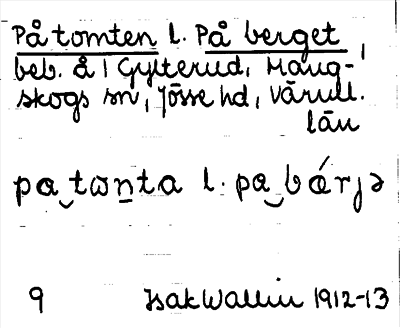 På tomten l. På berget
beb. å 1 Gylterud, Mang-
skogs sn, Jösse hd, Värml.
län
pa‿tɷn̲ta l. pa‿bǽrjə
9 Isak Wallin 1912-13